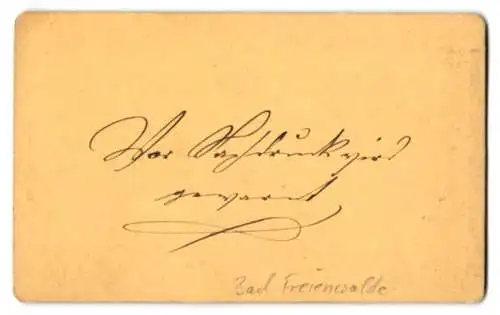 Vor Nachdruck wird
gewarnt
Bad Freienwalde